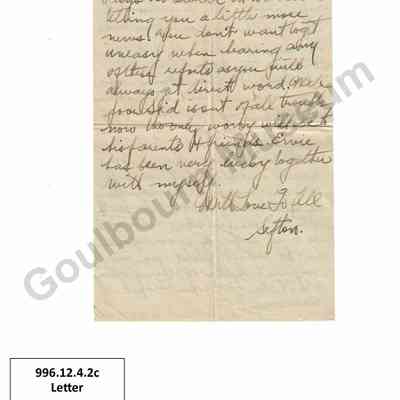 telling you a little more
news. You don't want to get
uneasy when hearing any
of these reports as you will
always get direct word. Well
poor Sid is out of all trouble
now the only worry will be
his parents & friends. Ernie
has been very lucky together
with myself.
With Love To All
Sefton.
Goulbourn Museum
996.12.4.2c
Letter